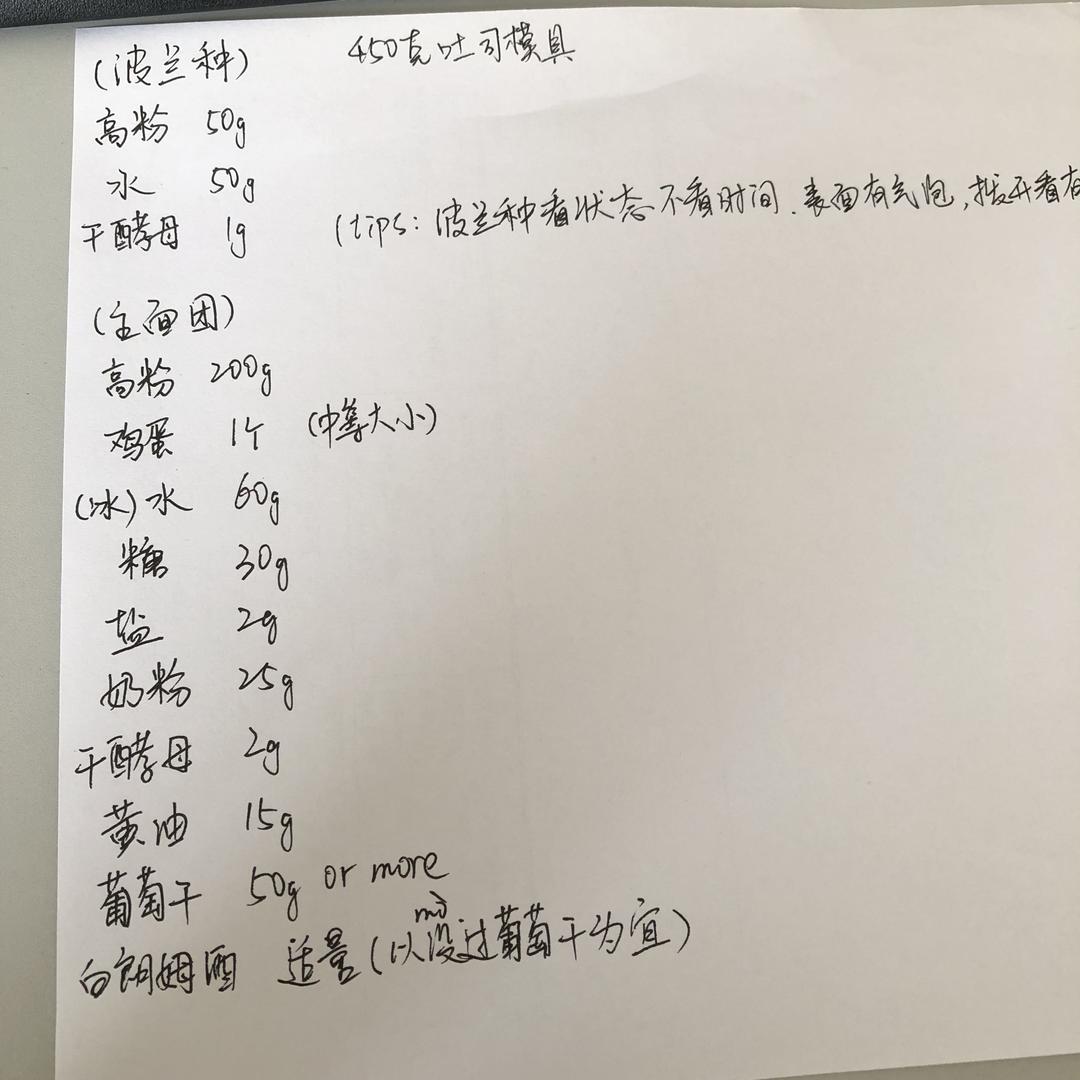 (波兰种) 450克吐司模具
高粉 50g
水 50g
干酵母 1g (tips: 波兰种看状态不看时间.表面有气泡,拨开看有
(主面团)
高粉 200g
鸡蛋 1个 (中等大小)
(冰)水 60g
糖 30g
盐 2g
奶粉 25g
干酵母 2g
黄油 15g
葡萄干 50g or more
mò
白朗姆酒 适量(以没过葡萄干为宜)